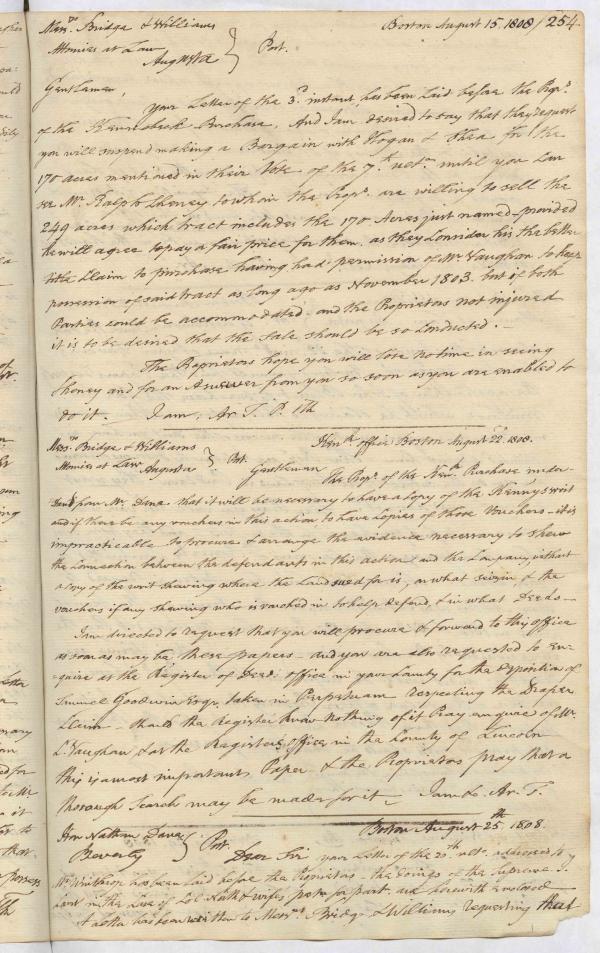 Messrs. Bridge & Williams Boston August 15. 1808 / 254
Attornies at Law } Post.
Augusta
Gentlemen,
Your Letter of the 3d. instant has been laid before the Proprs.
of the Kennebeck Purchase, And I am desired to say that they request
you will suspend making a Bargain with Hogan & Shea for the
170 acres mentioned in their Vote of the 7th. ulto. until you can
see Mr. Ralph Cheney to whom the Proprs. are willing to sell the
249 acres which tract includes the 170 Acres just named provided
he will agree to pay a fair price for them, as they Consider his the better
title Claim to purchase having had permission of Mr. Vaughan to keep
possession of said tract as long ago as November 1803. but if both
Parties could be accommodated and the Proprietors not injured
it is to be desired that the Sale should be so Conducted. –
The Proprietors hope you will lose no time in seeing
Cheney and for an Answer from you so soon as you are enabled to
do it. I am, Ar. T. P. Kth
Messrs. Bridge & Williams Kenk. office Boston August 22d. 1808.
Attornies at Law. Augusta } Post. Gentlemen
The Proprs. of the Kenk. Purchase under-
stand from Mr. Dana that it will be necessary to have a Copy of the Kenny's writ
and if there be any vouchers in this action to have Copies of those Vouchers – it is
impracticable to procure & arrange the evidence necessary to shew
the Connection between the defendants in this action and the Company, without
a Copy of the writ shewing where the Land sued for is, on what seizin & the
vouchers if any shewing who is vouched in to help defend, & in what Deeds –
I am directed to request that you will procure & forward to this office
as soon as may be these papers – and you are also requested to en-
quire at the Register of Deeds office in your County for the deposition of
Samuel Goodwin Esqr. taken in Perpetuam respecting the Draper
Claim – should the Register know nothing of it Pray enquire of Mr.
C. Vaughan & at the Registers office, in the County of Lincoln
this is a most important Paper & the Proprietors pray that a
thorough Search may be made for it – I am &c Ar. T.
Hon Nathan Dane } Post. Boston August 25th. 1808.
Beverly Dear Sir your Letter of the 20th. ult. addressed to
Mr. Winthrop has been laid before the Proprietors – the doings of the Supreme J.
Court in the Case of Col. North & wifes petn. for part. are herewith enclosed
A letter has been written to Messrs. Bridge & Williams requesting that